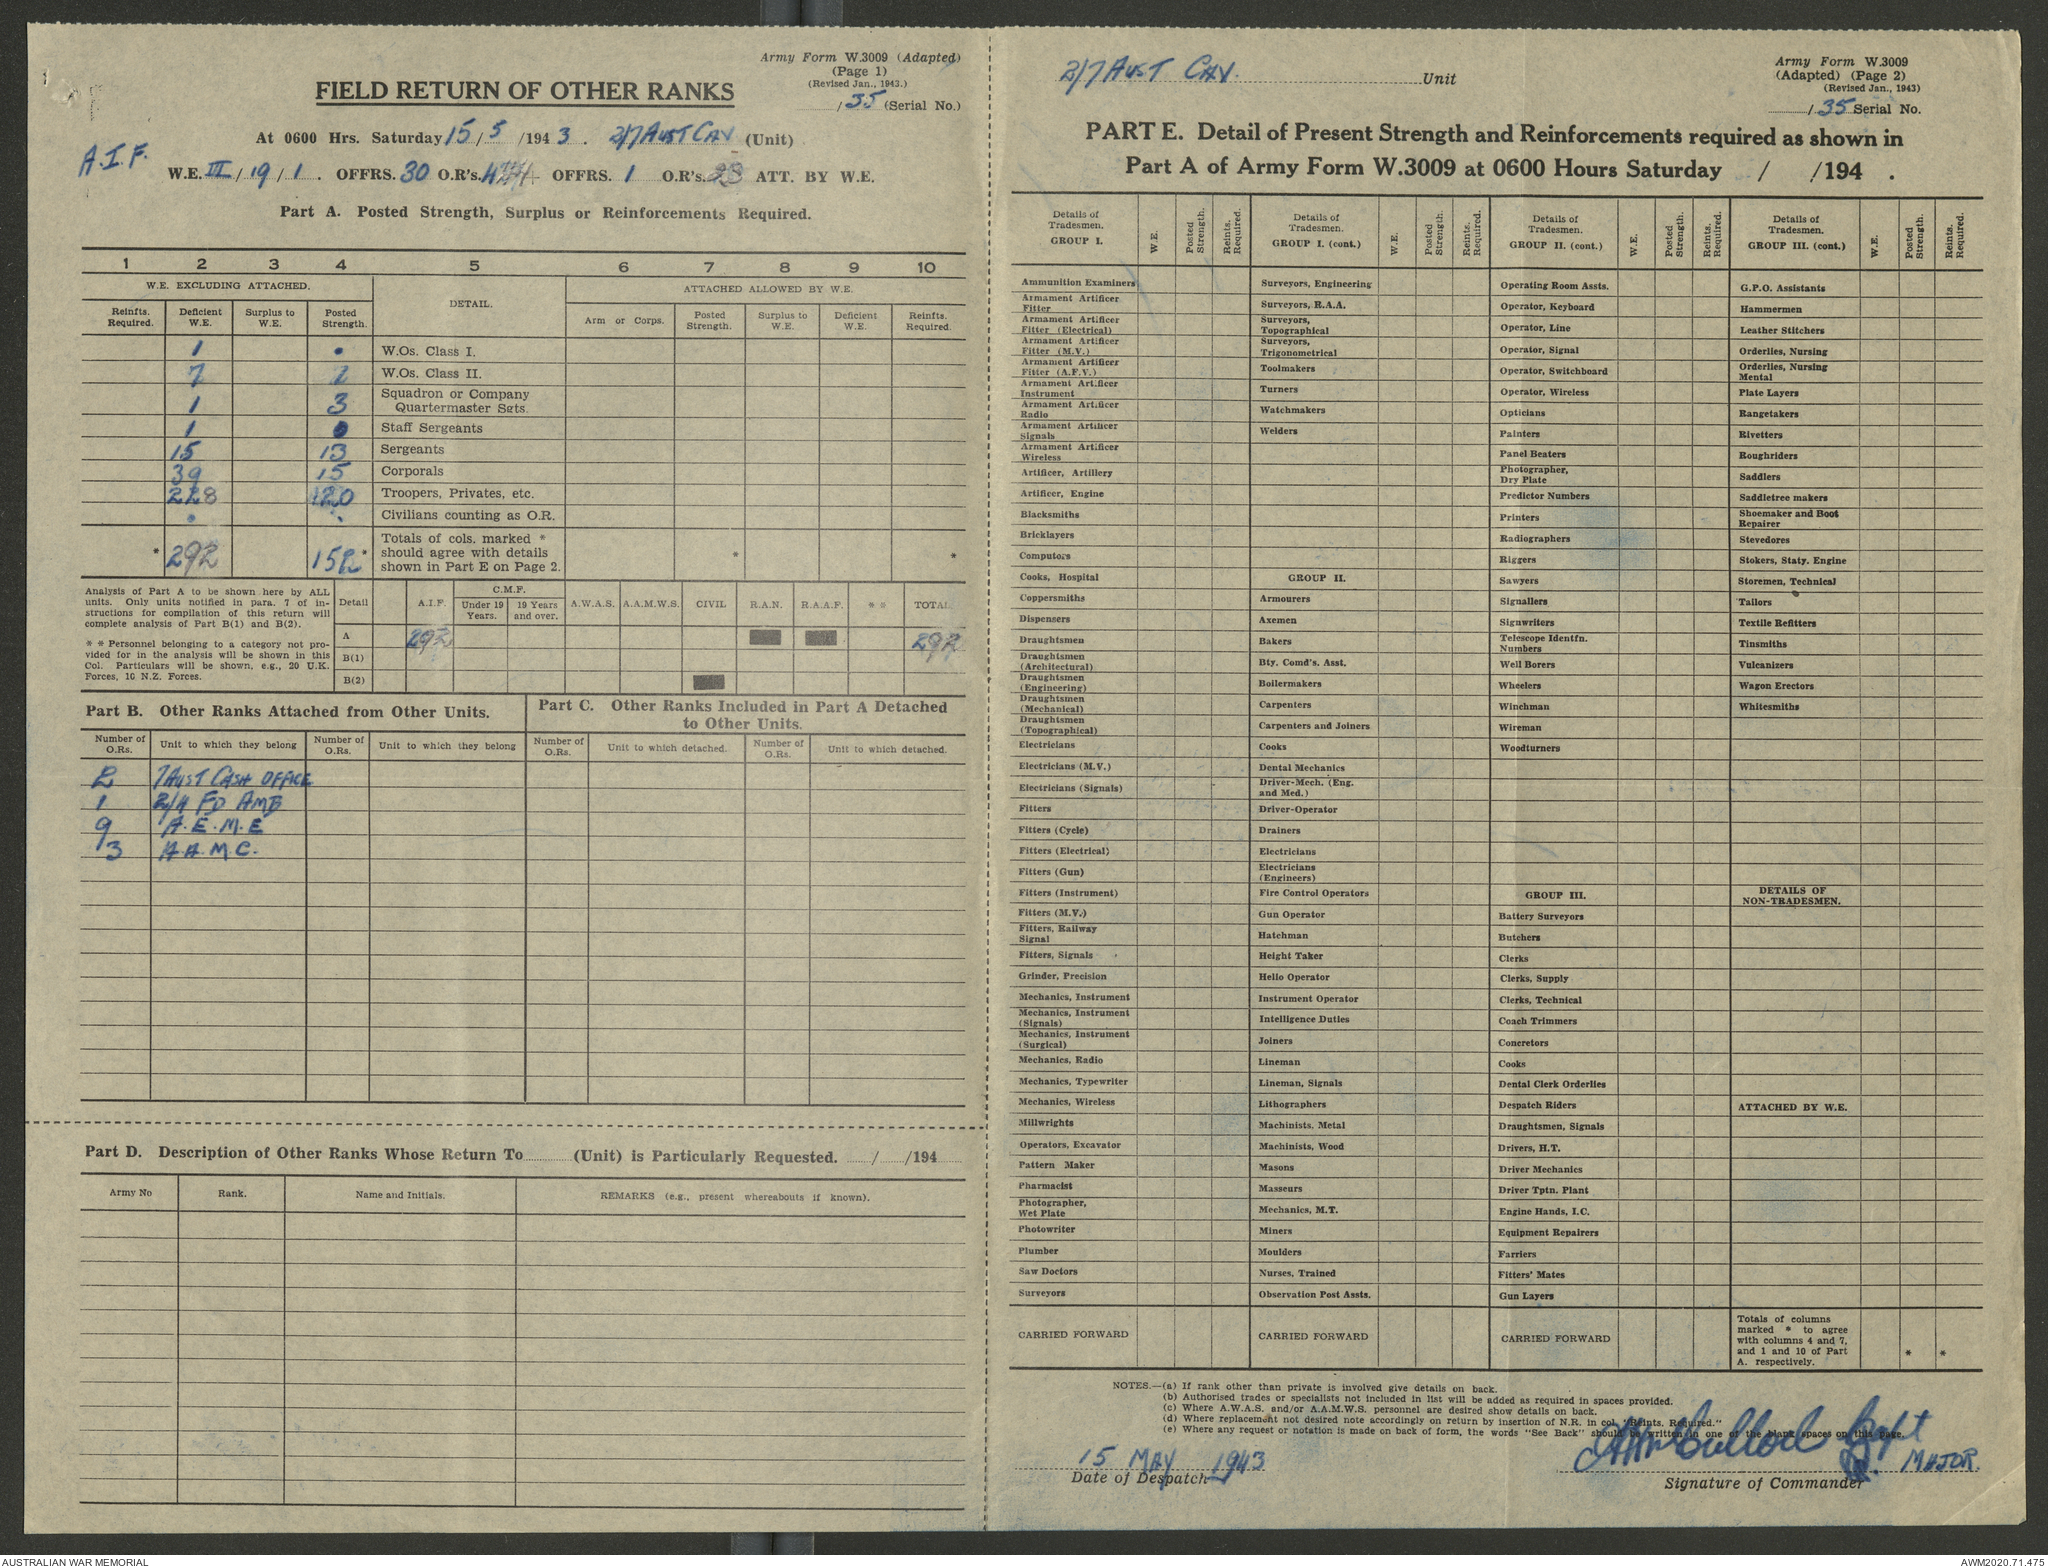 Army Form W.3009 (Adapted)
(Page 1)
(Revised Jan., 1943.)
/35 (Serial No.)
FIELD RETURN OF OTHER RANKS
At 0600 Hrs. Saturday 15/5/1943. 2/7 AUST CAV (Unit)
A.I.F.
W.E. III/19/1. OFFRS. 30 O.R's. OFFRS. 1 O.R's. 23 ATT. BY W.E.
Part A. Posted Strength, Surplus or Reinforcements Required.
1 2 3 4 5 6 7 8 9 10
W.E. EXCLUDING ATTACHED. DETAIL. ATTACHED ALLOWED BY W.E.
Reinfts. Required. Deficient W.E. Surplus to W.E. Posted Strength. Arm or Corps. Posted Strength. Surplus to W.E. Deficient W.E. Reinfts. Required.
1 . W.Os. Class I.
7 1 W.Os. Class II.
1 3 Squadron or Company Quartermaster Sgts.
1 . Staff Sergeants
15 13 Sergeants
39 15 Corporals
228 120 Troopers, Privates, etc.
. . Civilians counting as O.R.
* 292 152 * Totals of cols. marked * should agree with details shown in Part E on Page 2. * *
Analysis of Part A to be shown here by ALL
units. Only units notified in para. 7 of in-
structions for compilation of this return will
complete analysis of Part B(1) and B(2).
* * Personnel belonging to a category not pro-
vided for in the analysis will be shown in this
Col. Particulars will be shown, e.g., 20 U.K.
Forces, 10 N.Z. Forces.
Detail A.I.F. C.M.F. Under 19 Years. 19 Years and over. A.W.A.S. A.A.M.W.S. CIVIL R.A.N. R.A.A.F. * * TOTAL
A 292 292
B(1)
B(2)
Part B. Other Ranks Attached from Other Units.
Part C. Other Ranks Included in Part A Detached
to Other Units.
Number of O.Rs. Unit to which they belong Number of O.Rs. Unit to which they belong Number of O.Rs. Unit to which detached. Number of O.Rs. Unit to which detached.
2 7 AUST CASH OFFICE
1 2/4 FD AMB
9 A.E.M.E
3 A.A.M.C.
Part D. Description of Other Ranks Whose Return To (Unit) is Particularly Requested. / /194
Army No Rank. Name and Initials. REMARKS (e.g., present whereabouts if known).
2/7 AUST CAV. Unit
Army Form W.3009
(Adapted) (Page 2)
(Revised Jan., 1943)
/35 Serial No.
PART E. Detail of Present Strength and Reinforcements required as shown in
Part A of Army Form W.3009 at 0600 Hours Saturday / /194 .
Details of Tradesmen. GROUP I. W.E. Posted Strength. Reints. Required.
Ammunition Examiners
Armament Artificer Fitter
Armament Artificer Fitter (Electrical)
Armament Artificer Fitter (M.V.)
Armament Artificer Fitter (A.F.V.)
Armament Artificer Instrument
Armament Artificer Radio
Armament Artificer Signals
Armament Artificer Wireless
Artificer, Artillery
Artificer, Engine
Blacksmiths
Bricklayers
Computors
Cooks, Hospital
Coppersmiths
Dispensers
Draughtsmen
Draughtsmen (Architectural)
Draughtsmen (Engineering)
Draughtsmen (Mechanical)
Draughtsmen (Topographical)
Electricians
Electricians (M.V.)
Electricians (Signals)
Fitters
Fitters (Cycle)
Fitters (Electrical)
Fitters (Gun)
Fitters (Instrument)
Fitters (M.V.)
Fitters, Railway Signal
Fitters, Signals
Grinder, Precision
Mechanics, Instrument
Mechanics, Instrument (Signals)
Mechanics, Instrument (Surgical)
Mechanics, Radio
Mechanics, Typewriter
Mechanics, Wireless
Millwrights
Operators, Excavator
Pattern Maker
Pharmacist
Photographer, Wet Plate
Photowriter
Plumber
Saw Doctors
Surveyors
CARRIED FORWARD
Details of Tradesmen. GROUP I. (cont.) W.E. Posted Strength. Reints. Required.
Surveyors, Engineering
Surveyors, R.A.A.
Surveyors, Topographical
Surveyors, Trigonometrical
Toolmakers
Turners
Watchmakers
Welders
GROUP II.
Armourers
Axemen
Bakers
Bty. Comd's. Asst.
Boilermakers
Carpenters
Carpenters and Joiners
Cooks
Dental Mechanics
Driver-Mech. (Eng. and Med.)
Driver-Operator
Drainers
Electricians
Electricians (Engineers)
Fire Control Operators
Gun Operator
Hatchman
Height Taker
Helio Operator
Instrument Operator
Intelligence Duties
Joiners
Lineman
Lineman, Signals
Lithographers
Machinists, Metal
Machinists, Wood
Masons
Masseurs
Mechanics, M.T.
Miners
Moulders
Nurses, Trained
Observation Post Assts.
CARRIED FORWARD
Details of Tradesmen. GROUP II. (cont.) W.E. Posted Strength. Reints. Required.
Operating Room Assts.
Operator, Keyboard
Operator, Line
Operator, Signal
Operator, Switchboard
Operator, Wireless
Opticians
Painters
Panel Beaters
Photographer, Dry Plate
Predictor Numbers
Printers
Radiographers
Riggers
Sawyers
Signallers
Signwriters
Telescope Identfn. Numbers
Well Borers
Wheelers
Winchman
Wireman
Woodturners
GROUP III.
Battery Surveyors
Butchers
Clerks
Clerks, Supply
Clerks, Technical
Coach Trimmers
Concretors
Cooks
Dental Clerk Orderlies
Despatch Riders
Draughtsmen, Signals
Drivers, H.T.
Driver Mechanics
Driver Tptn. Plant
Engine Hands, I.C.
Equipment Repairers
Farriers
Fitters' Mates
Gun Layers
CARRIED FORWARD
Details of Tradesmen. GROUP III. (cont.) W.E. Posted Strength. Reints. Required.
G.P.O. Assistants
Hammermen
Leather Stitchers
Orderlies, Nursing
Orderlies, Nursing Mental
Plate Layers
Rangetakers
Rivetters
Roughriders
Saddlers
Saddletree makers
Shoemaker and Boot Repairer
Stevedores
Stokers, Staty. Engine
Storemen, Technical
Tailors
Textile Refitters
Tinsmiths
Vulcanizers
Wagon Erectors
Whitesmiths
DETAILS OF NON-TRADESMEN.
ATTACHED BY W.E.
Totals of columns
marked * to agree
with columns 4 and 7,
and 1 and 10 of Part
A. respectively. * *
NOTES.—(a) If rank other than private is involved give details on back.
(b) Authorised trades or specialists not included in list will be added as required in spaces provided.
(c) Where A.W.A.S. and/or A.A.M.W.S. personnel are desired show details on back.
(d) Where replacement not desired note accordingly on return by insertion of N.R. in col. "Reints. Required."
(e) Where any request or notation is made on back of form, the words "See Back" should be written in one of the blank spaces on this page.
15 MAY 1943
Date of Despatch
Capt
MAJOR.
Signature of Commander
AUSTRALIAN WAR MEMORIAL
AWM2020.71.475